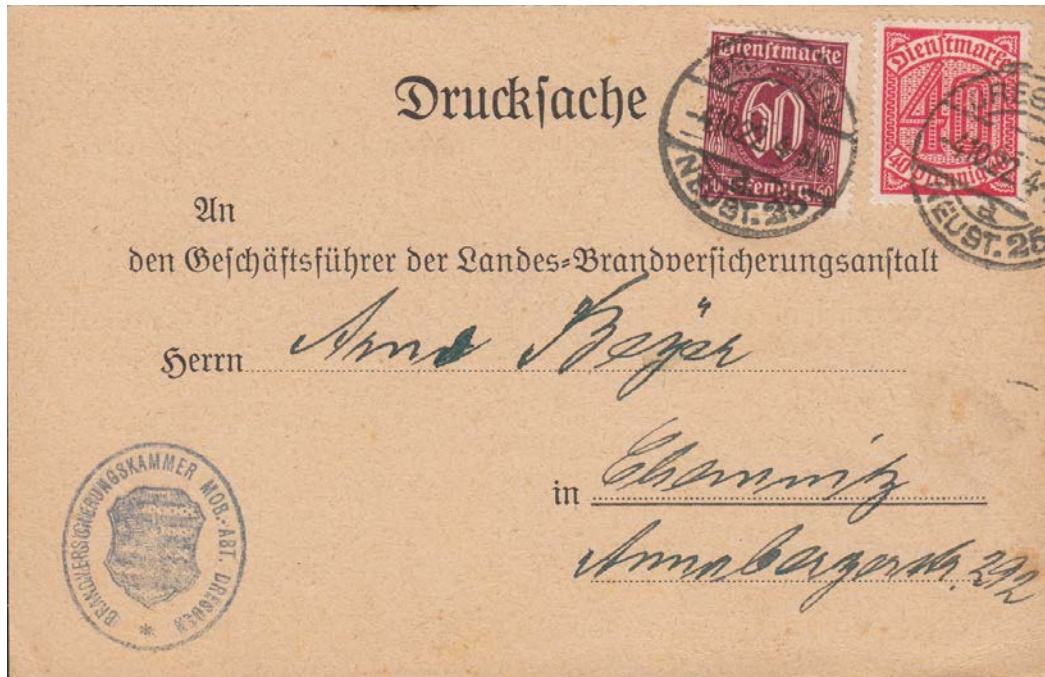 Drucksache
Dienstmarke
60
Pfennig 60
Dienstmarke
40
40 Pfennig 40
NEUST. 25
NEUST. 25
An
den Geschäftsführer der Landes-Brandversicherungsanstalt
Herrn Arno Beyer
in Chemnitz
Annabergerstr. 292
BRANDVERSICHERUNGSKAMMER MOB.-ABT. DRESDEN